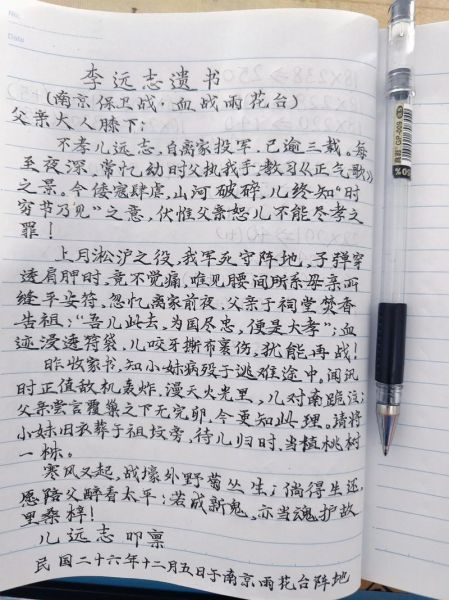 No:
Date
李远志遗书
(南京保卫战·血战雨花台)
父亲大人膝下:
不孝儿远志,自离家投军,已逾三载。每
至夜深,常忆幼时父执我手,教习《正气歌》
之景。今倭寇肆虐,山河破碎,儿终知"时
穷节乃见"之意,伏惟父亲恕儿不能尽孝之
罪!
上月淞沪之役,我军死守阵地,子弹穿
透肩胛时,竟不觉痛,唯见腰间所系母亲所
缝平安符。忽忆离家前夜,父亲于祠堂焚香
告祖:"吾儿此去,为国尽忠,便是大孝";血
迹浸透符袋,儿咬牙撕布裹伤,犹能再战!
昨收家书,知小妹病殁于逃难途中。闻讯
时正值敌机轰炸,漫天火光里,儿对南跪泣;
父亲尝言覆巢之下无完卵,今更知此理。请将
小妹旧衣葬于祖坟旁,待儿归时,当植桃树
一株。
寒风又起,战壕外野菊丛生;倘得生还,
愿陪父醉看太平;若成新鬼,亦当魂护故
里桑梓!
儿远志 叩禀
民国二十六年十二月五日于南京雨花台阵地